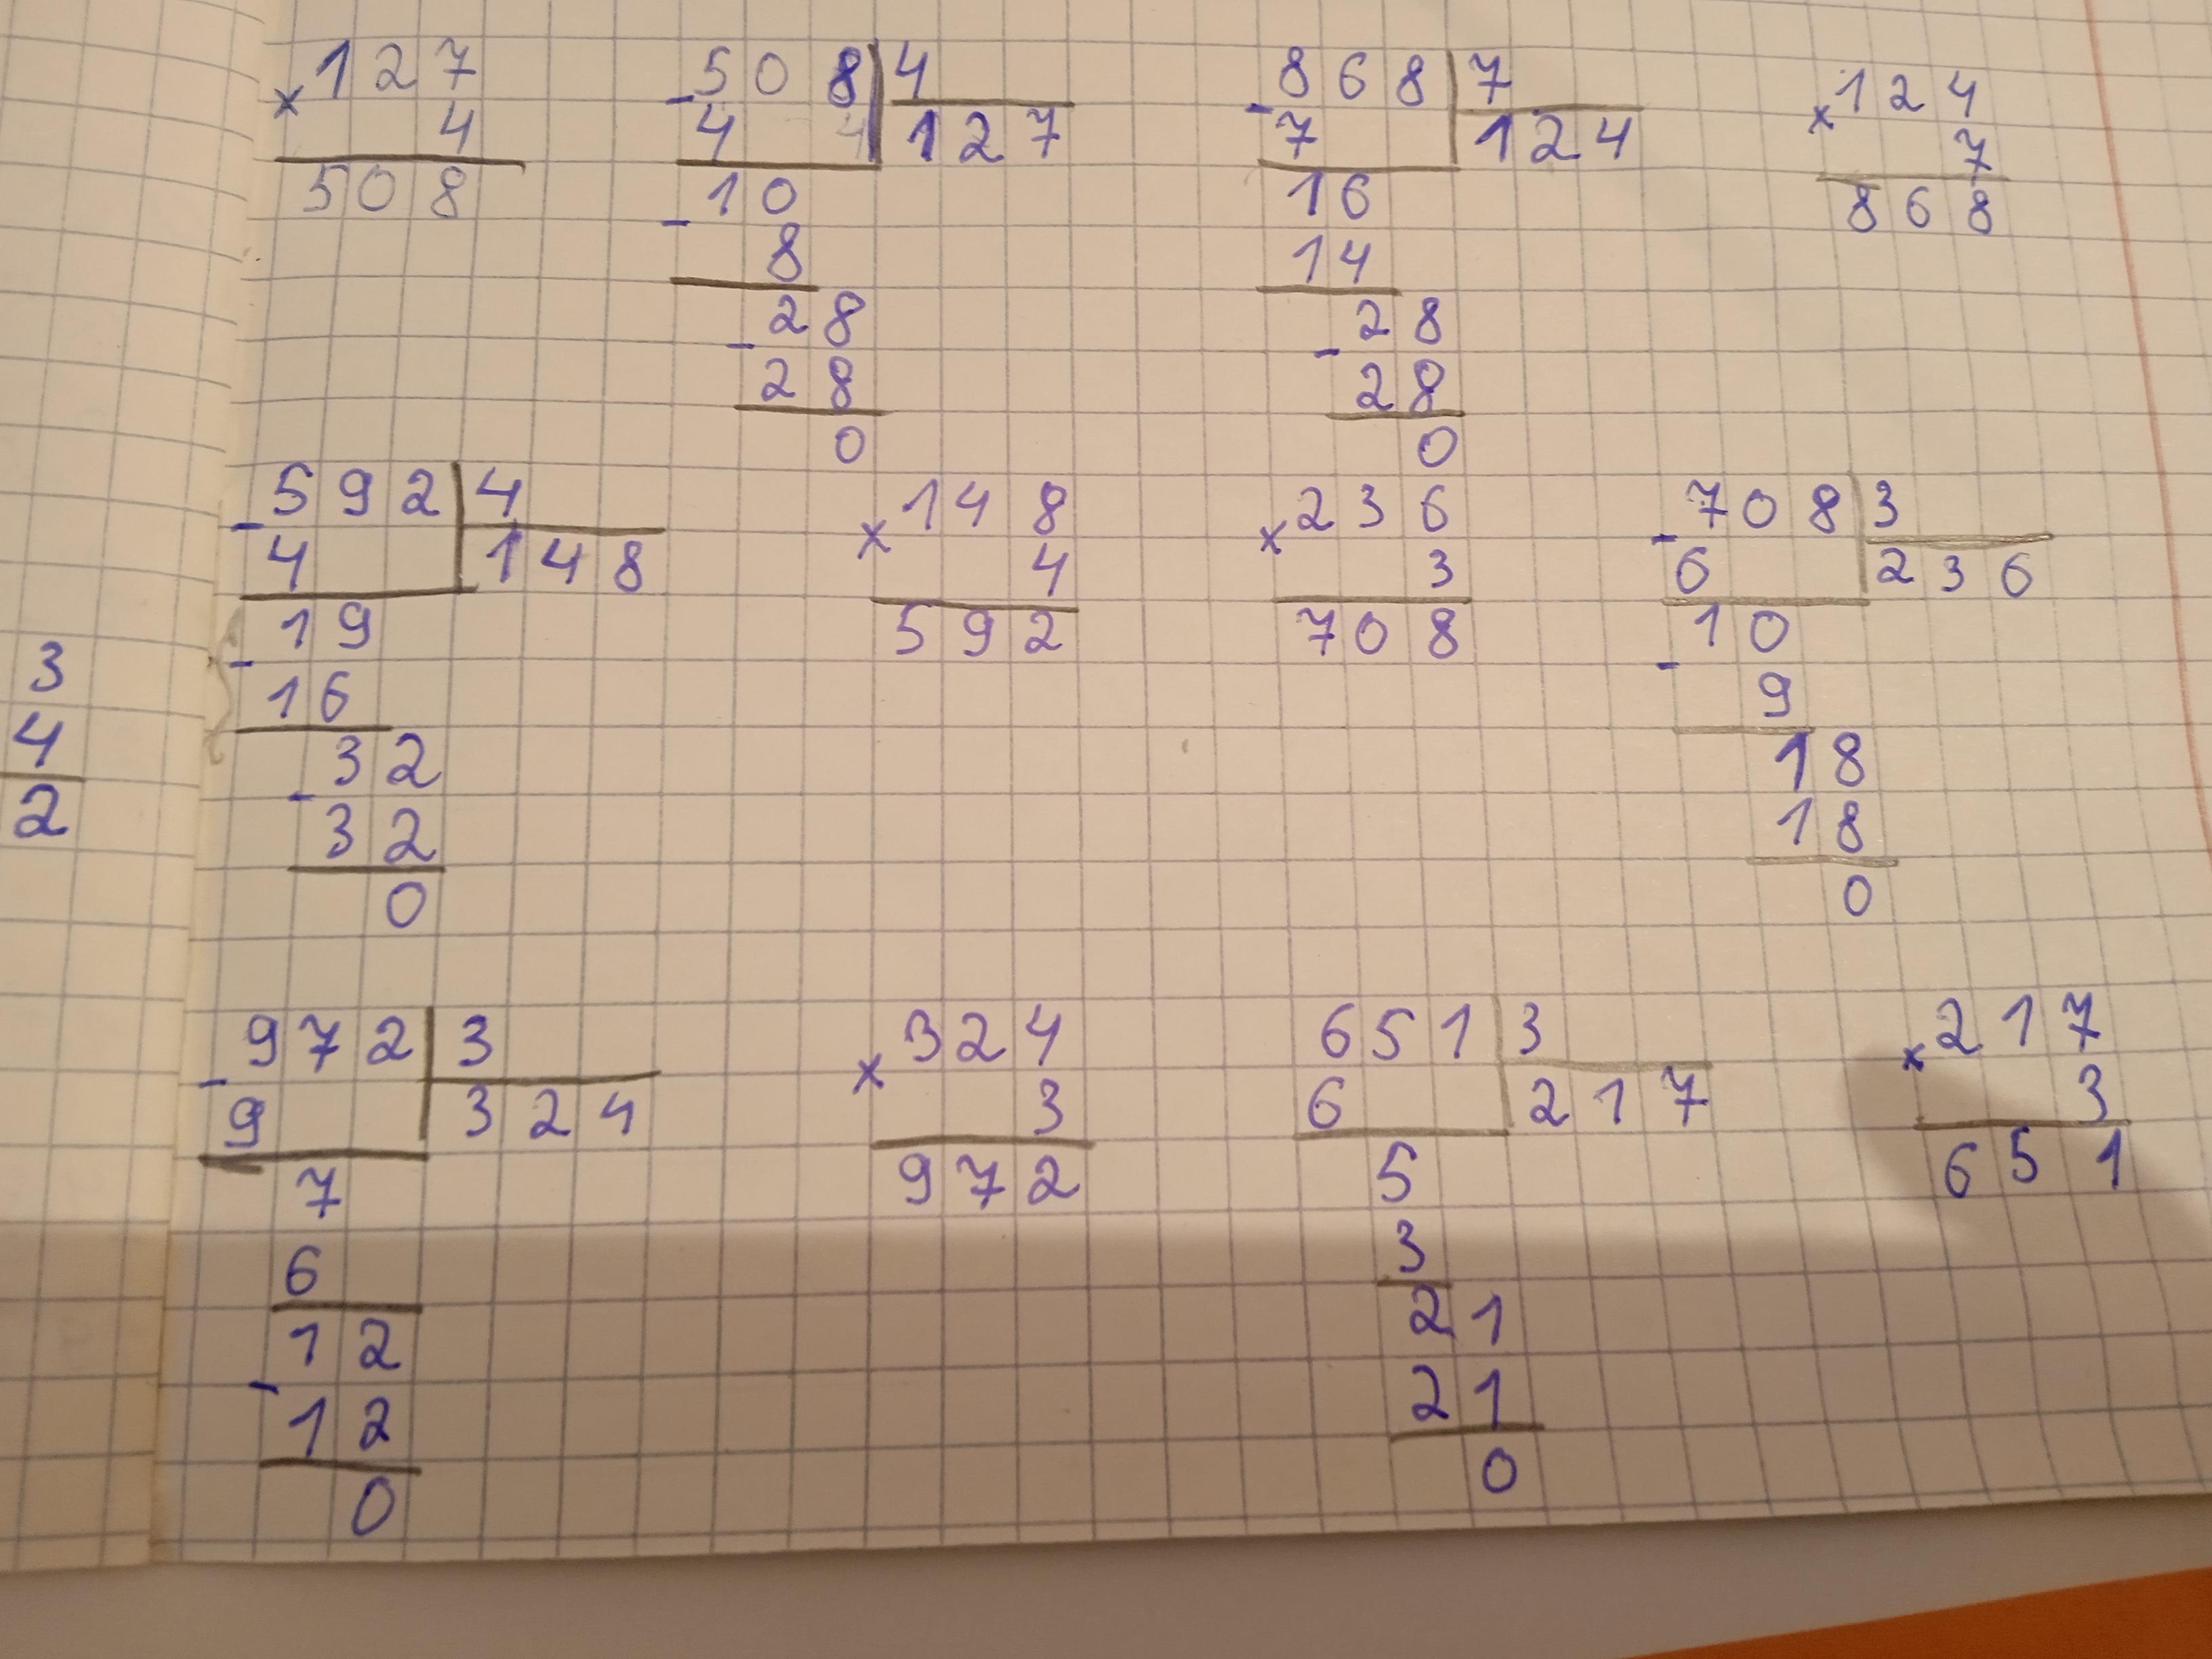 × 127
4
508
- 508 | 4
4 4 127
10
- 8
28
- 28
0
- 868 | 7
7 124
16
14
28
- 28
0
× 124
7
868
3
4
2
- 592 | 4
4 148
19
- 16
32
- 32
0
× 148
4
592
× 236
3
708
- 708 | 3
6 236
10
- 9
18
18
0
- 972 | 3
9 324
7
6
12
- 12
0
× 324
3
972
651 | 3
6 217
5
3
21
21
0
× 217
3
651